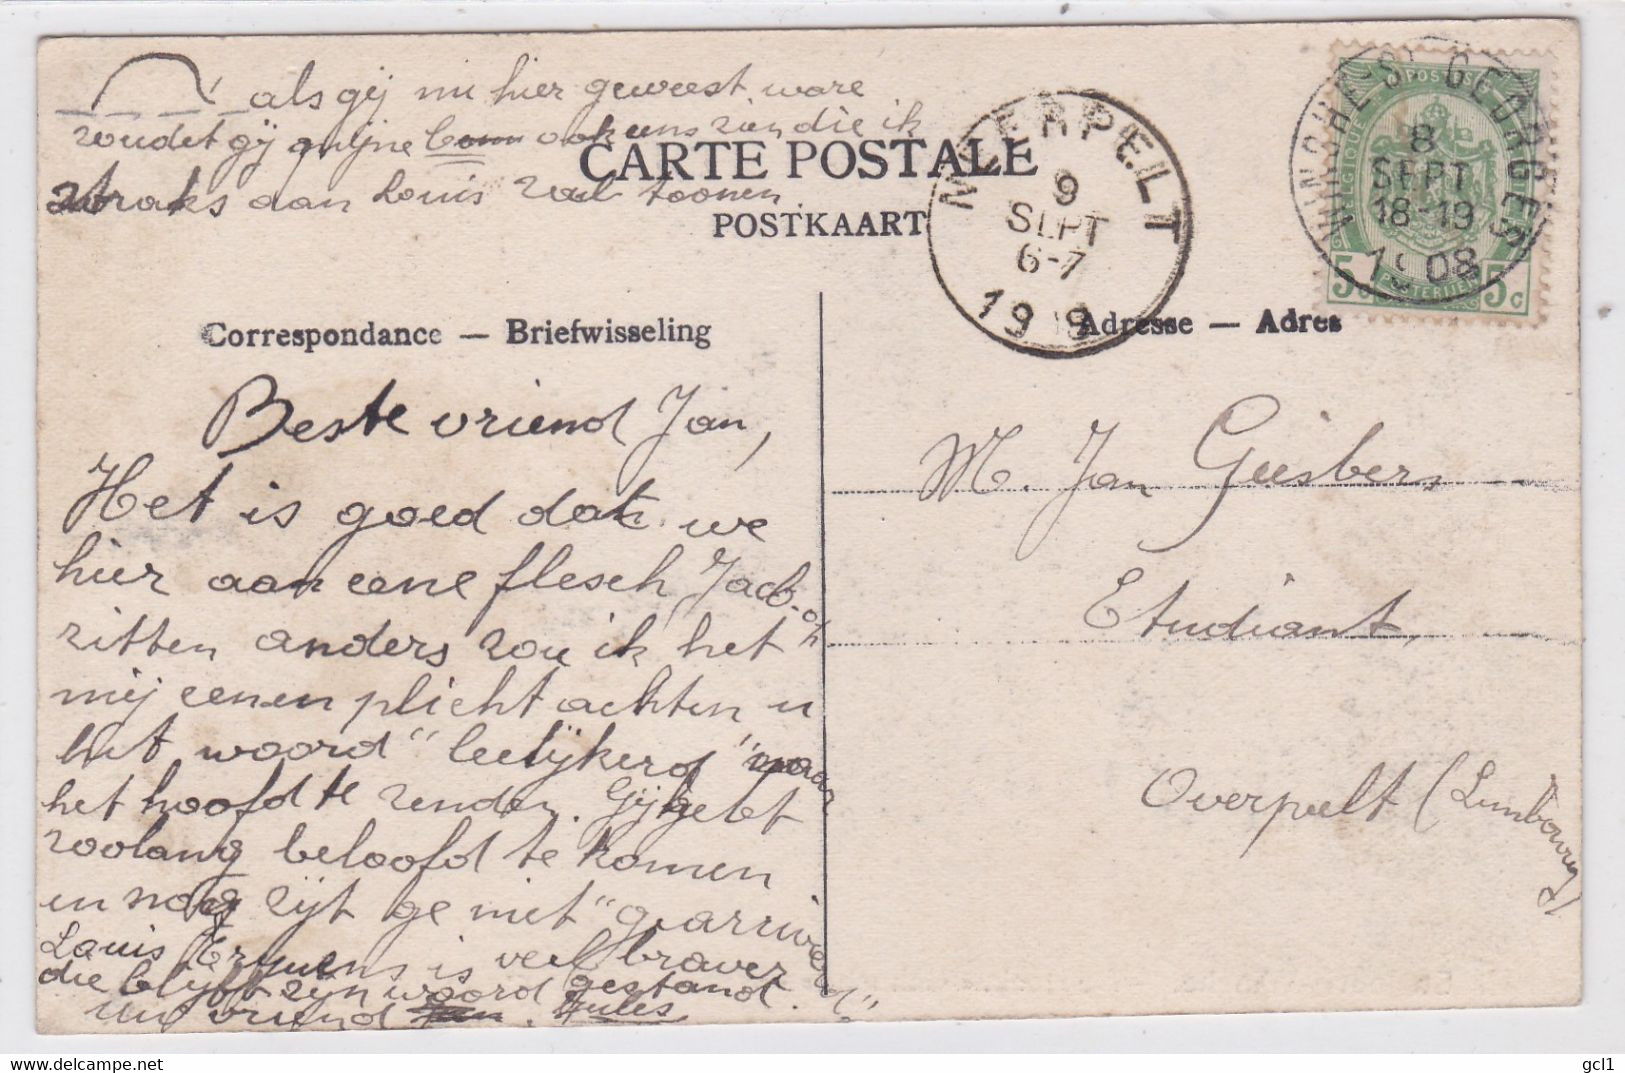 als gij nu hier geweest ware
zoudet gij mijne bonn ook eens zien die ik
straks aan Louis zal toonen.
CARTE POSTALE
POSTKAART
NEERPELT
9
SEPT
6-7
19
MINCHE-ST GEORGES
8
SEPT
18-19
1908
POSTERIJEN
5c 5c
Correspondance — Briefwisseling
Adresse — Adres
Beste vriend Jan,
Het is goed dat we
hier aan eene flesch Jack-op
zitten anders zou ik het
mij eenen plicht achten u
het woord "leelijkerd" naar
het hoofd te zenden. Gij hebt
zoolang beloofd te komen
en nog zijt ge niet "gearriveerd".
Louis is veel braver
die blijft zijn woord gestand.
uw vriend Jules
M. Jan Geisbers
Etudiant,
Overpelt (Limbourg)
delcampe.net
gcl1